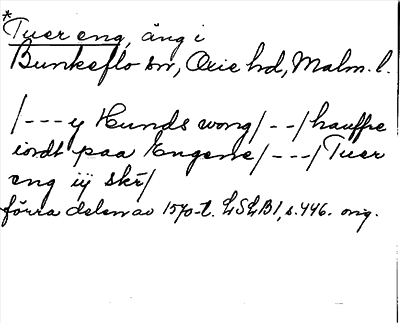 * Tuer eng, äng i
Bunkeflo sn, Oxie hd, Malm. l.
/---y Hunds wong/--/hauffre
iordt paa Engene/---/Tuer
eng iij skr/
förra delen av 1570-t. LSLB 1, s. 446. orig.